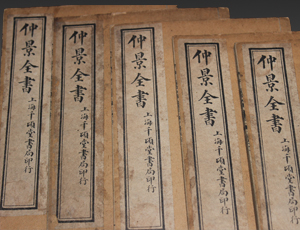 仲景全書
上海千頃堂書局印行
仲景全書
上海千頃堂書局印行
仲景全書
上海千頃堂書局印行
仲景全書
上海千頃堂書局印行
仲景全書
上海千頃堂書局印行